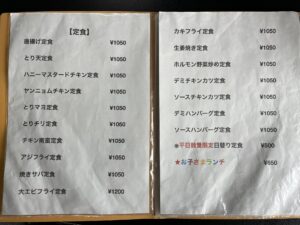 【定食】
唐揚げ定食 ¥1050
とり天定食 ¥1050
ハニーマスタードチキン定食 ¥1050
ヤンニョムチキン定食 ¥1050
とりマヨ定食 ¥1050
とりチリ定食 ¥1050
チキン南蛮定食 ¥1050
アジフライ定食 ¥1050
焼きサバ定食 ¥1050
大エビフライ定食 ¥1200
カキフライ定食 ¥1050
生姜焼き定食 ¥1050
ホルモン野菜炒め定食 ¥1050
デミチキンカツ定食 ¥1050
ソースチキンカツ定食 ¥1050
デミハンバーグ定食 ¥1050
ソースハンバーグ定食 ¥1050
※平日数量限定日替り定食 ¥800
★お子さまランチ ¥650